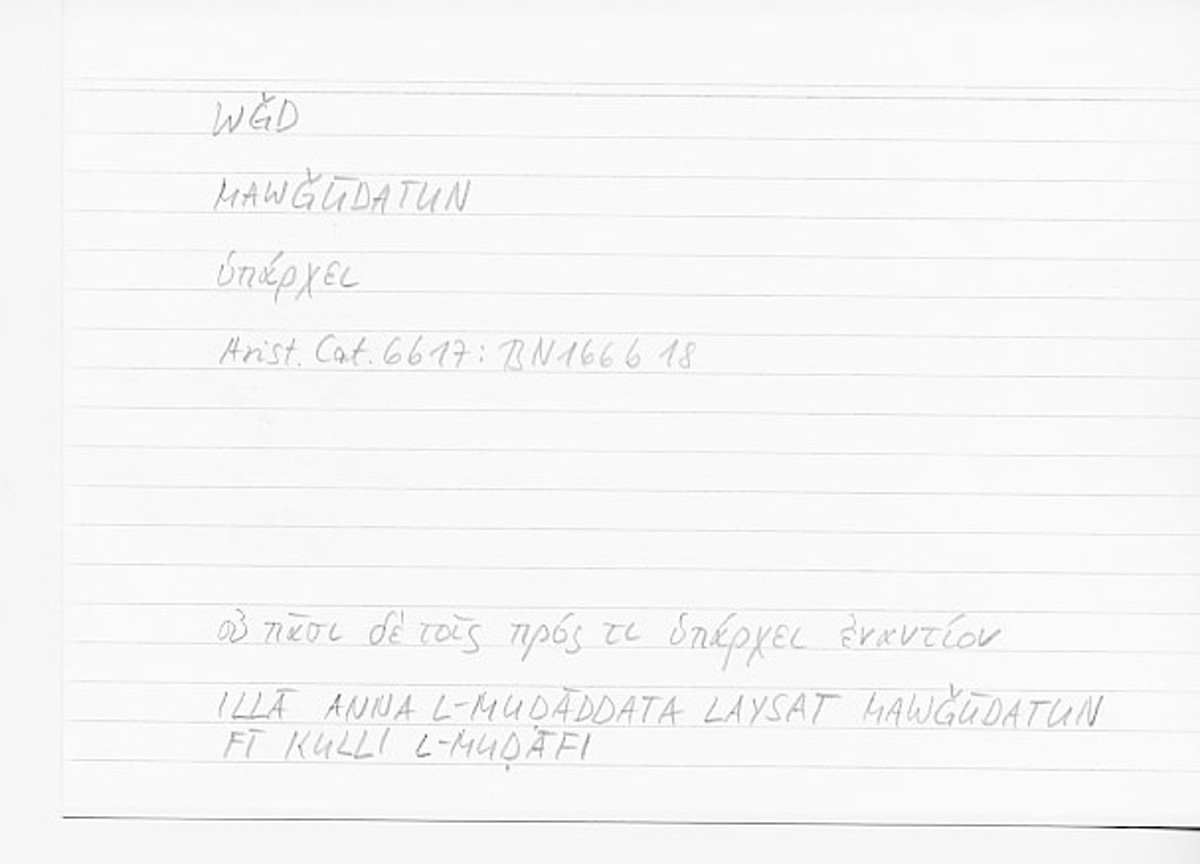 WĞD
MAWĞŪDATUN
ὑπάρχει
Arist. Cat. 6b17: BN166b 18
οὐ πᾶσι δὲ τοῖς πρός τι ὑπάρχει ἐναντίον
ILLĀ ANNA L-MUḌĀDDATA LAYSAT MAWĞŪDATUN
FĪ KULLI L-MUḌĀFI